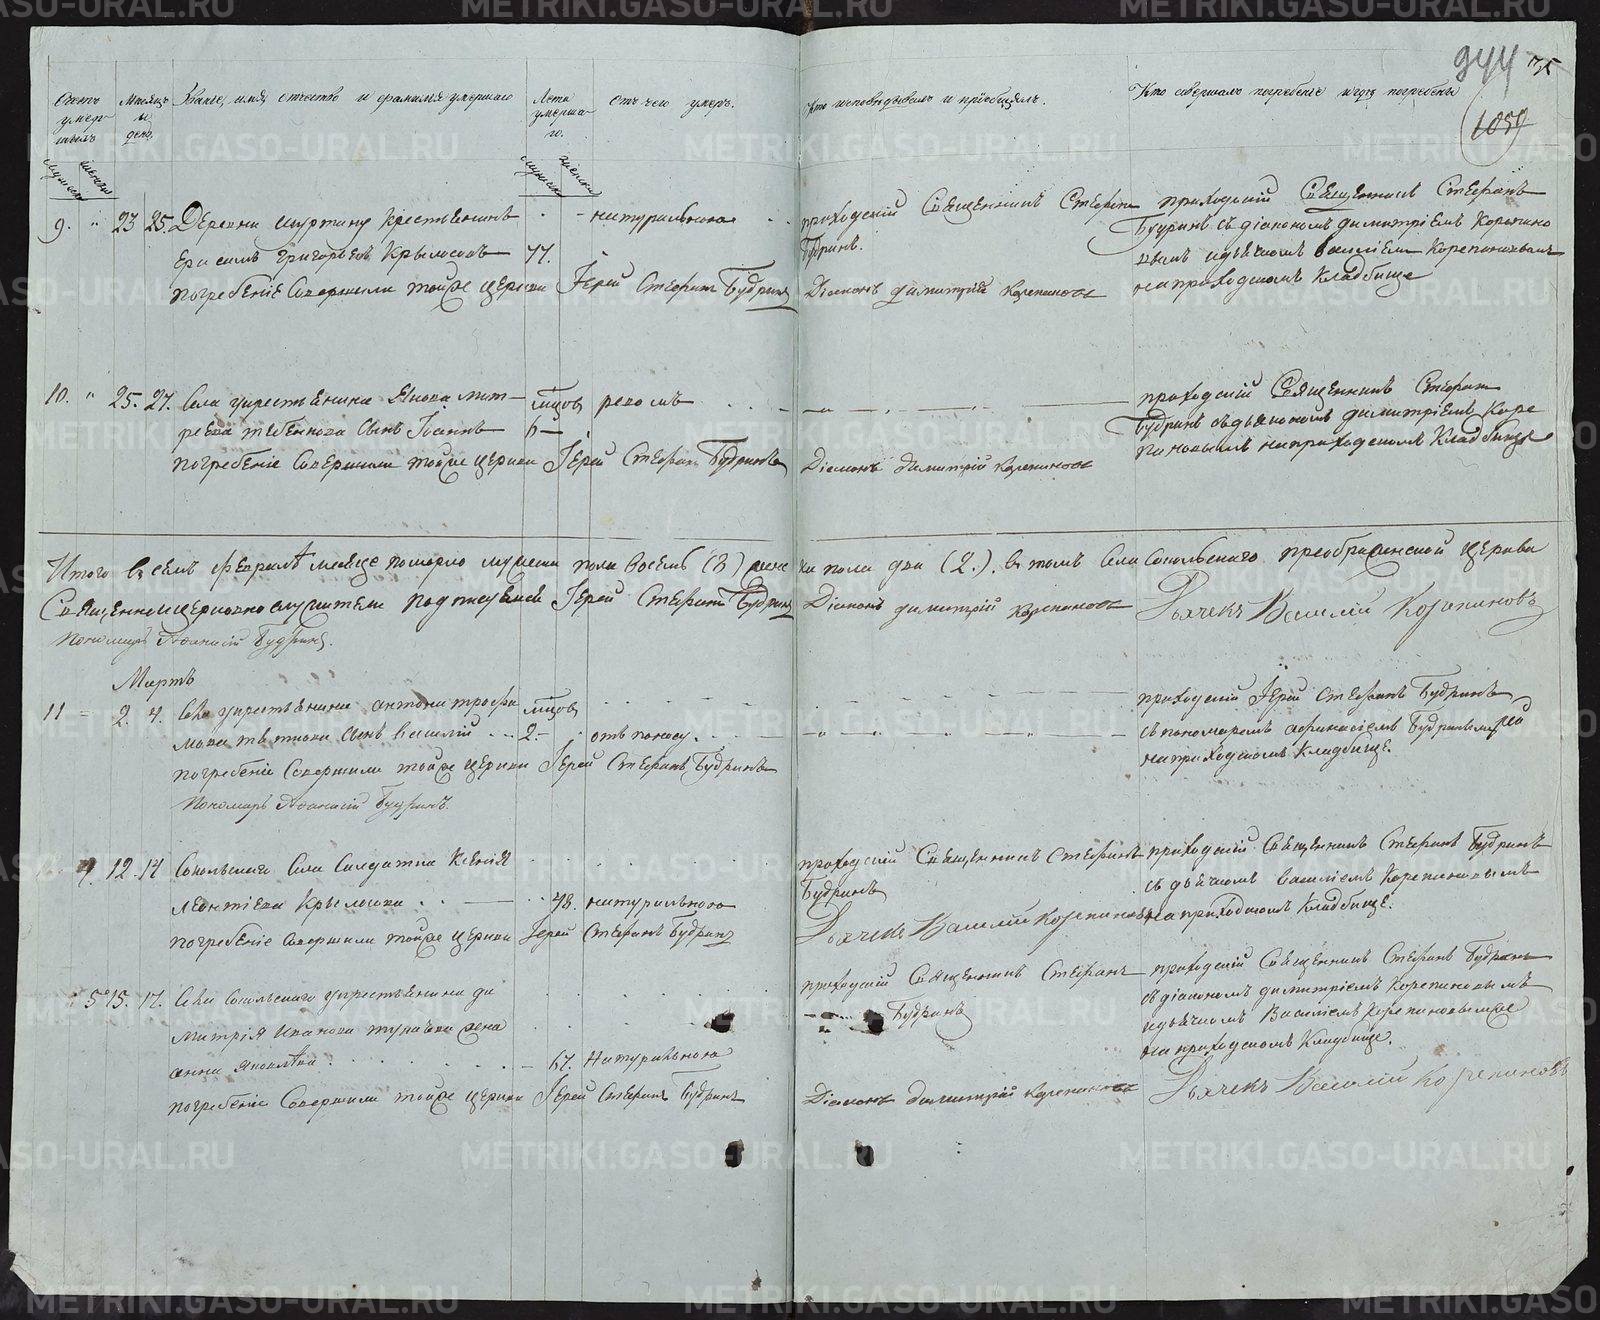 944 35
1059
Счетъ умер-шихъ
Мѣсяцъ и день
Званіе, имя, отчество и фамилія умершаго
Лета умерша-го.
Отъ чего умеръ.
Кто исповѣдывалъ и пріобщалъ.
Кто совершалъ погребеніе и гдѣ погребены
9. " 23 25. Деревни крестьянинъ - натуральною
Герасимъ Григорьевъ Крыласовъ 77.
погребеніе Совершили тойже церкви Іерей Стефанъ Будринъ
приходскій Священникъ Стефанъ
Будринъ.
Діаконъ Димитрій Корепановъ
приходскій Священникъ Стефанъ
Будринъ съ діакономъ димитріемъ Корепано
вымъ идьячкомъ василіемъ Корепановымъ
на приходскомъ Кладбище
10. " 25. 27. Села крестьянина сынъ Іоаннъ
погребеніе Совершили тойже церкви Іерей Стефанъ Будринъ
Діаконъ Димитрій Корепановъ
приходскій Священникъ Стефанъ
Будринъ съдьякономъ димитріемъ Коре
пановымъ на приходскомъ Кладбище
Итого въ семъ февралѣ месяце померло мужска пола восемь (8) женс
ка пола два (2.). въ томъ Села Сокольскаго преображенской церкви
Священноцерковнослужители подписуемся Іерей Стефанъ Будринъ Діаконъ димитрій Корепановъ Дьячекъ Василій Корепановъ
Пономарь Афанасій Будринъ.
Мартъ
11 - 2. 4. Села крестьянина антона трофи
мова сынъ василій 2. -
погребеніе Совершили тойже церкви Іерей Стефанъ Будринъ
Пономарь Афанасій Будринъ.
приходскій Іерей Стефанъ Будринъ
съ пономаремъ афанасіемъ Будринымъ
на приходскомъ Кладбище.
4. 12. 14 Сокольскаго Села Салдатка Ксенія
леонтіева Крыласова 48. натуральною
погребеніе Совершили тойже церкви Іерей Стефанъ Будринъ
приходскій Священникъ Стефанъ
Будринъ
Дьячекъ Василій Корепановъ
приходскій Священникъ Стефанъ Будринъ
съ дьячкомъ василіемъ Корепановымъ
на приходскомъ Кладбище.
" 5 15. 17. Села Сокольскаго крестьянина ди
митрія Иванова жена
анна Яковлева 67. Натуральною
погребеніе Совершили тойже церкви Іерей Стефанъ Будринъ
приходскій Священникъ Стефанъ
Будринъ
Діаконъ Димитрій Корепановъ
приходскій Священникъ Стефанъ Будринъ
съ діакономъ димитріемъ Корепановымъ
идьячкомъ Василіемъ Корепановымъже
на приходскомъ Кладбище.
Дьячекъ Василій Корепановъ
METRIKI.GASO-URAL.RU